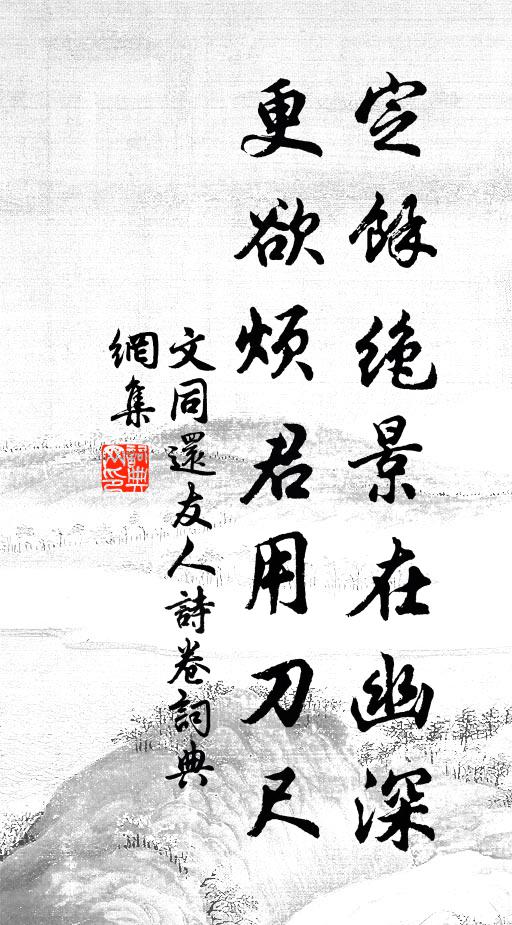 定餘絶景在幽深
更欲煩君用刀尺
文同還友人詩卷詞典
網集
詞典
网印